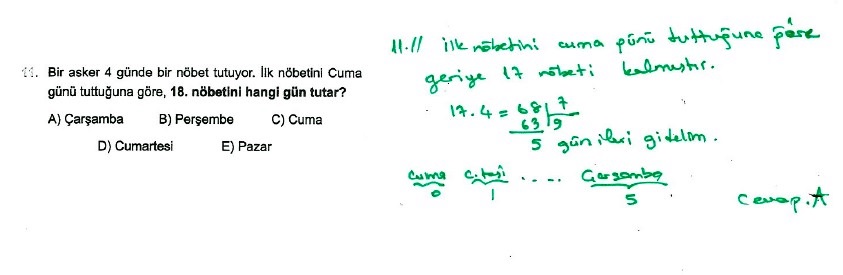 11. Bir asker 4 günde bir nöbet tutuyor. İlk nöbetini Cuma
günü tuttuğuna göre, 18. nöbetini hangi gün tutar?
A) Çarşamba B) Perşembe C) Cuma
D) Cumartesi E) Pazar
11.// İlk nöbetini cuma günü tuttuğuna göre
geriye 17 nöbeti kalmıştır.
17.4 = 68 | 7
63 | 9
5 gün ileri gidelim.
Cuma C.tesi .... Çarşamba
0 1 5
Cevap. A